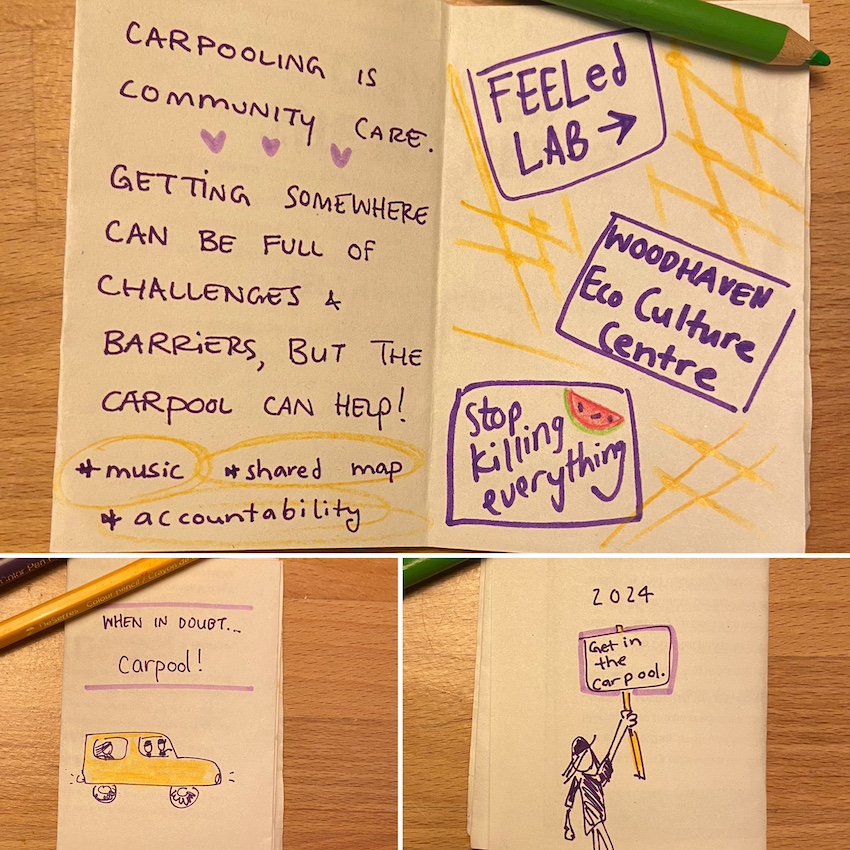 CARPOOLING IS
COMMUNITY CARE.
GETTING SOMEWHERE
CAN BE FULL OF
CHALLENGES &
BARRIERS, BUT THE
CARPOOL CAN HELP!
* music * shared map
* accountability
FEELed
LAB →
WOODHAVEN
Eco Culture
Centre
Stop
killing
everything
WHEN IN DOUBT...
Carpool!
2024
Get in
the
carpool.